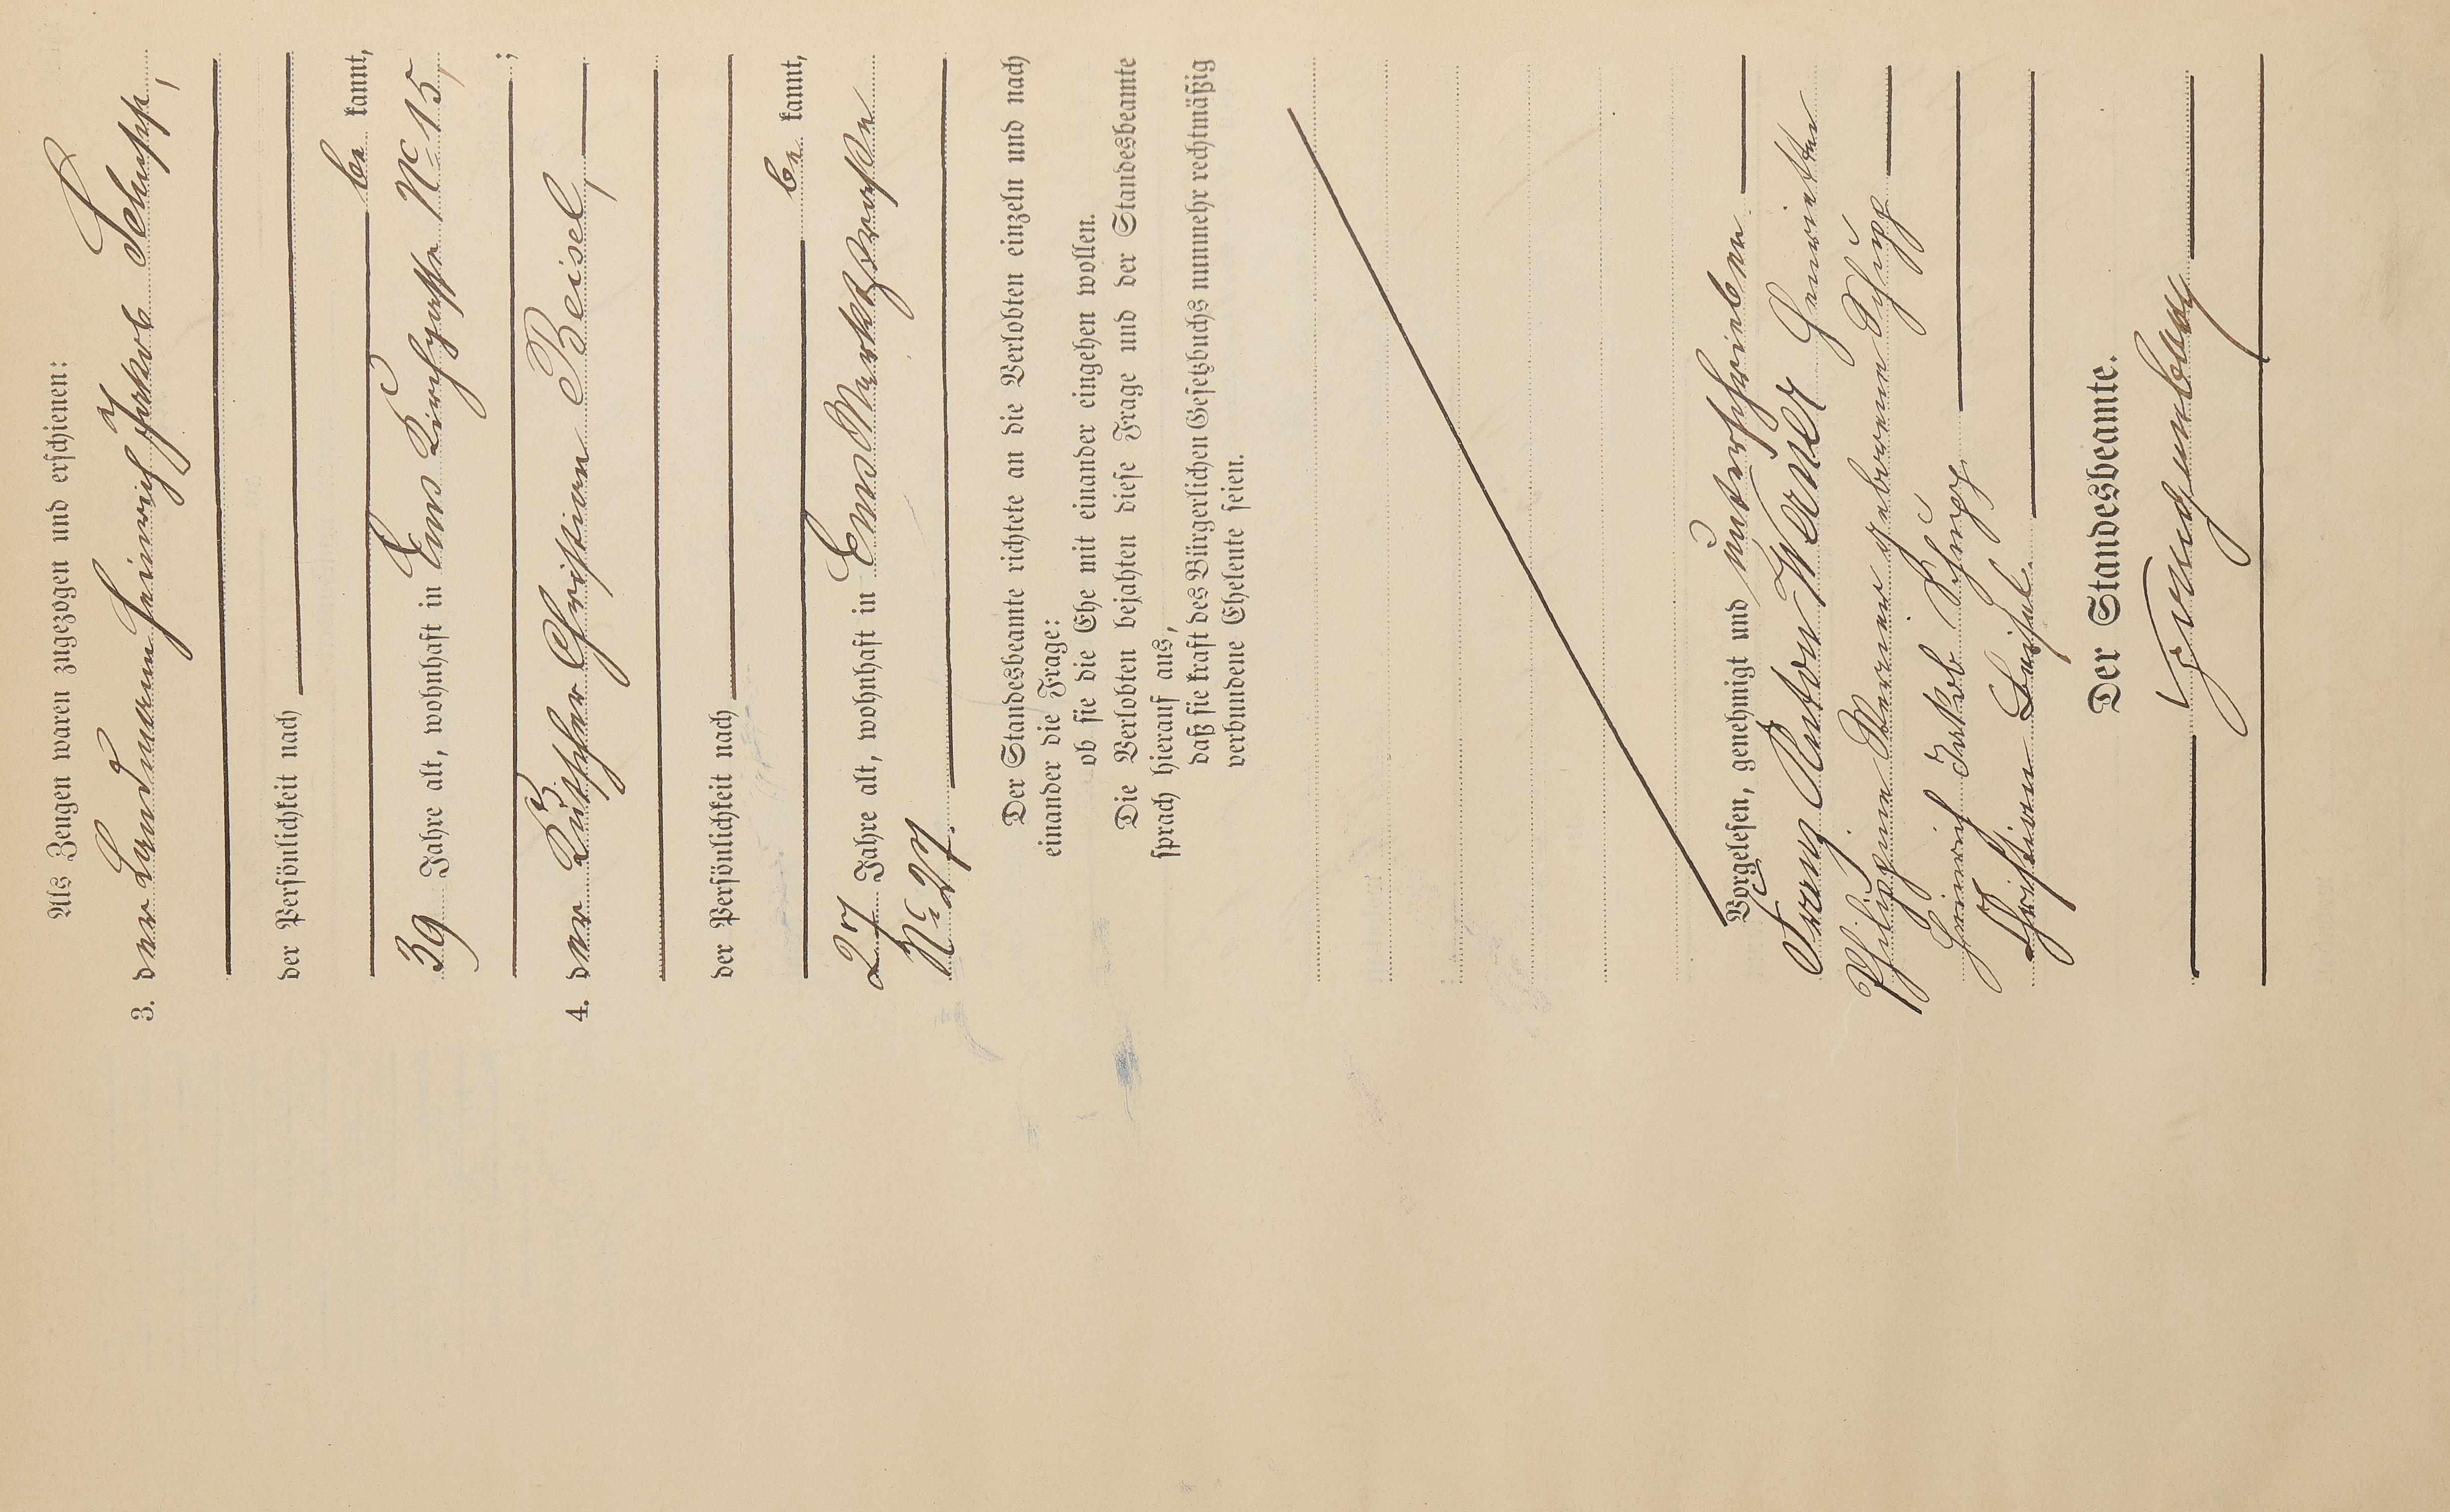 Als Zeugen waren zugezogen und erschienen:
3. der Landmann Heinrich Jakob Schupp,
der Persönlichkeit nach
be kannt,
39 Jahre alt, wohnhaft in Ems Kirchgasse No 15,
;
4. der Kutscher Christian Beisel,
der Persönlichkeit nach
be kannt,
27 Jahre alt, wohnhaft in Ems Marktstraße
No 27.
Der Standesbeamte richtete an die Verlobten einzeln und nach
einander die Frage:
ob sie die Ehe mit einander eingehen wollen.
Die Verlobten bejahten diese Frage und der Standesbeamte
sprach hierauf aus,
daß sie kraft des Bürgerlichen Gesetzbuchs nunmehr rechtmäßig
verbundene Eheleute seien.
Vorgelesen, genehmigt und unterschrieben
Franz Anton Werner Henriette
Philippine Werner geborene Schupp
Heinrich Jakob Schupp.
Christian Beisel.
Der Standesbeamte.